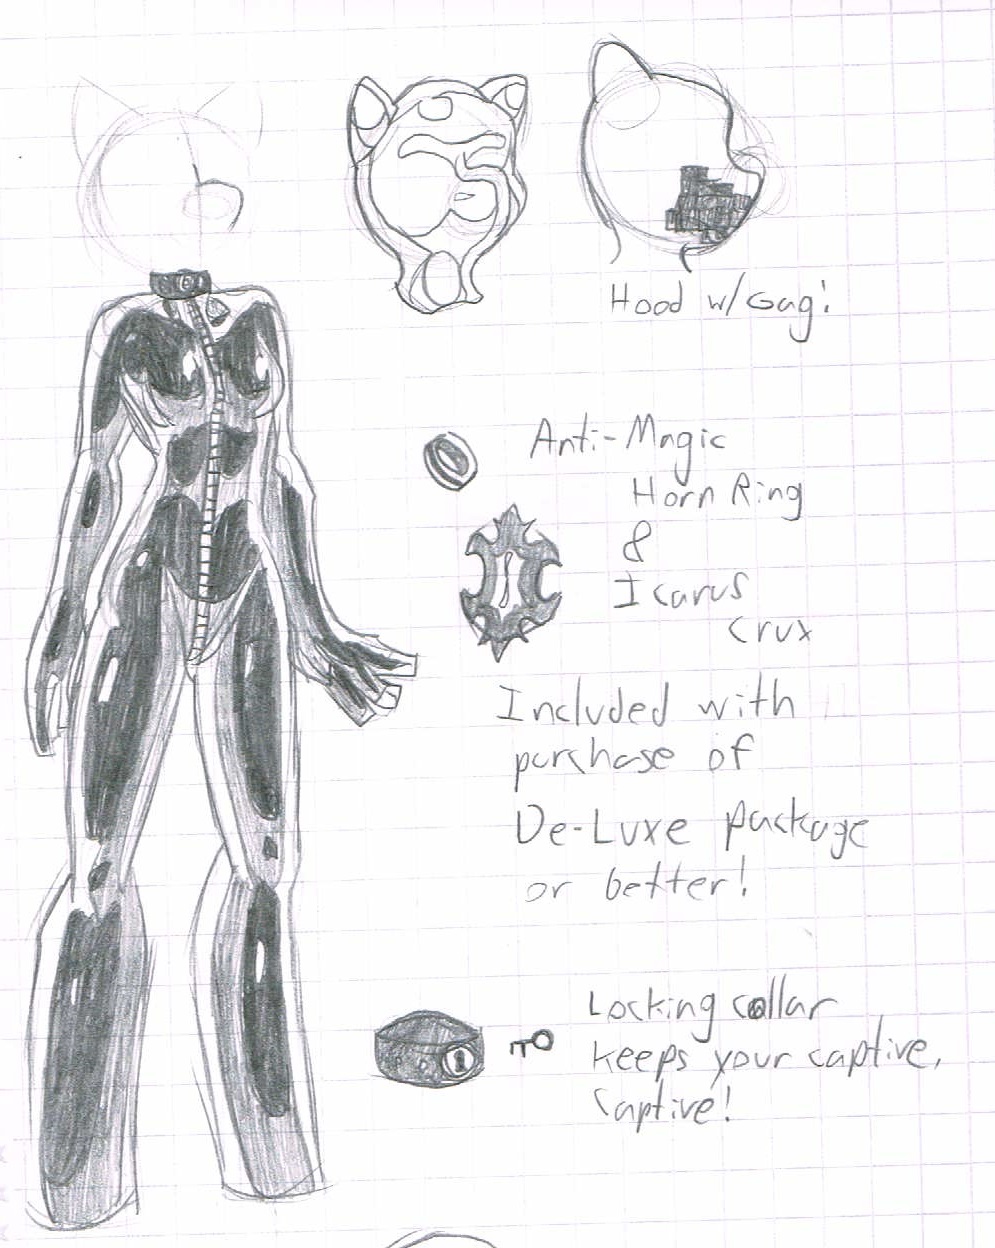 Hood w/Gag!
Anti-Magic
Horn Ring
&
Icarus
Crux
Included with
purchase of
De-Luxe package
or better!
Locking collar
keeps your captive,
captive!